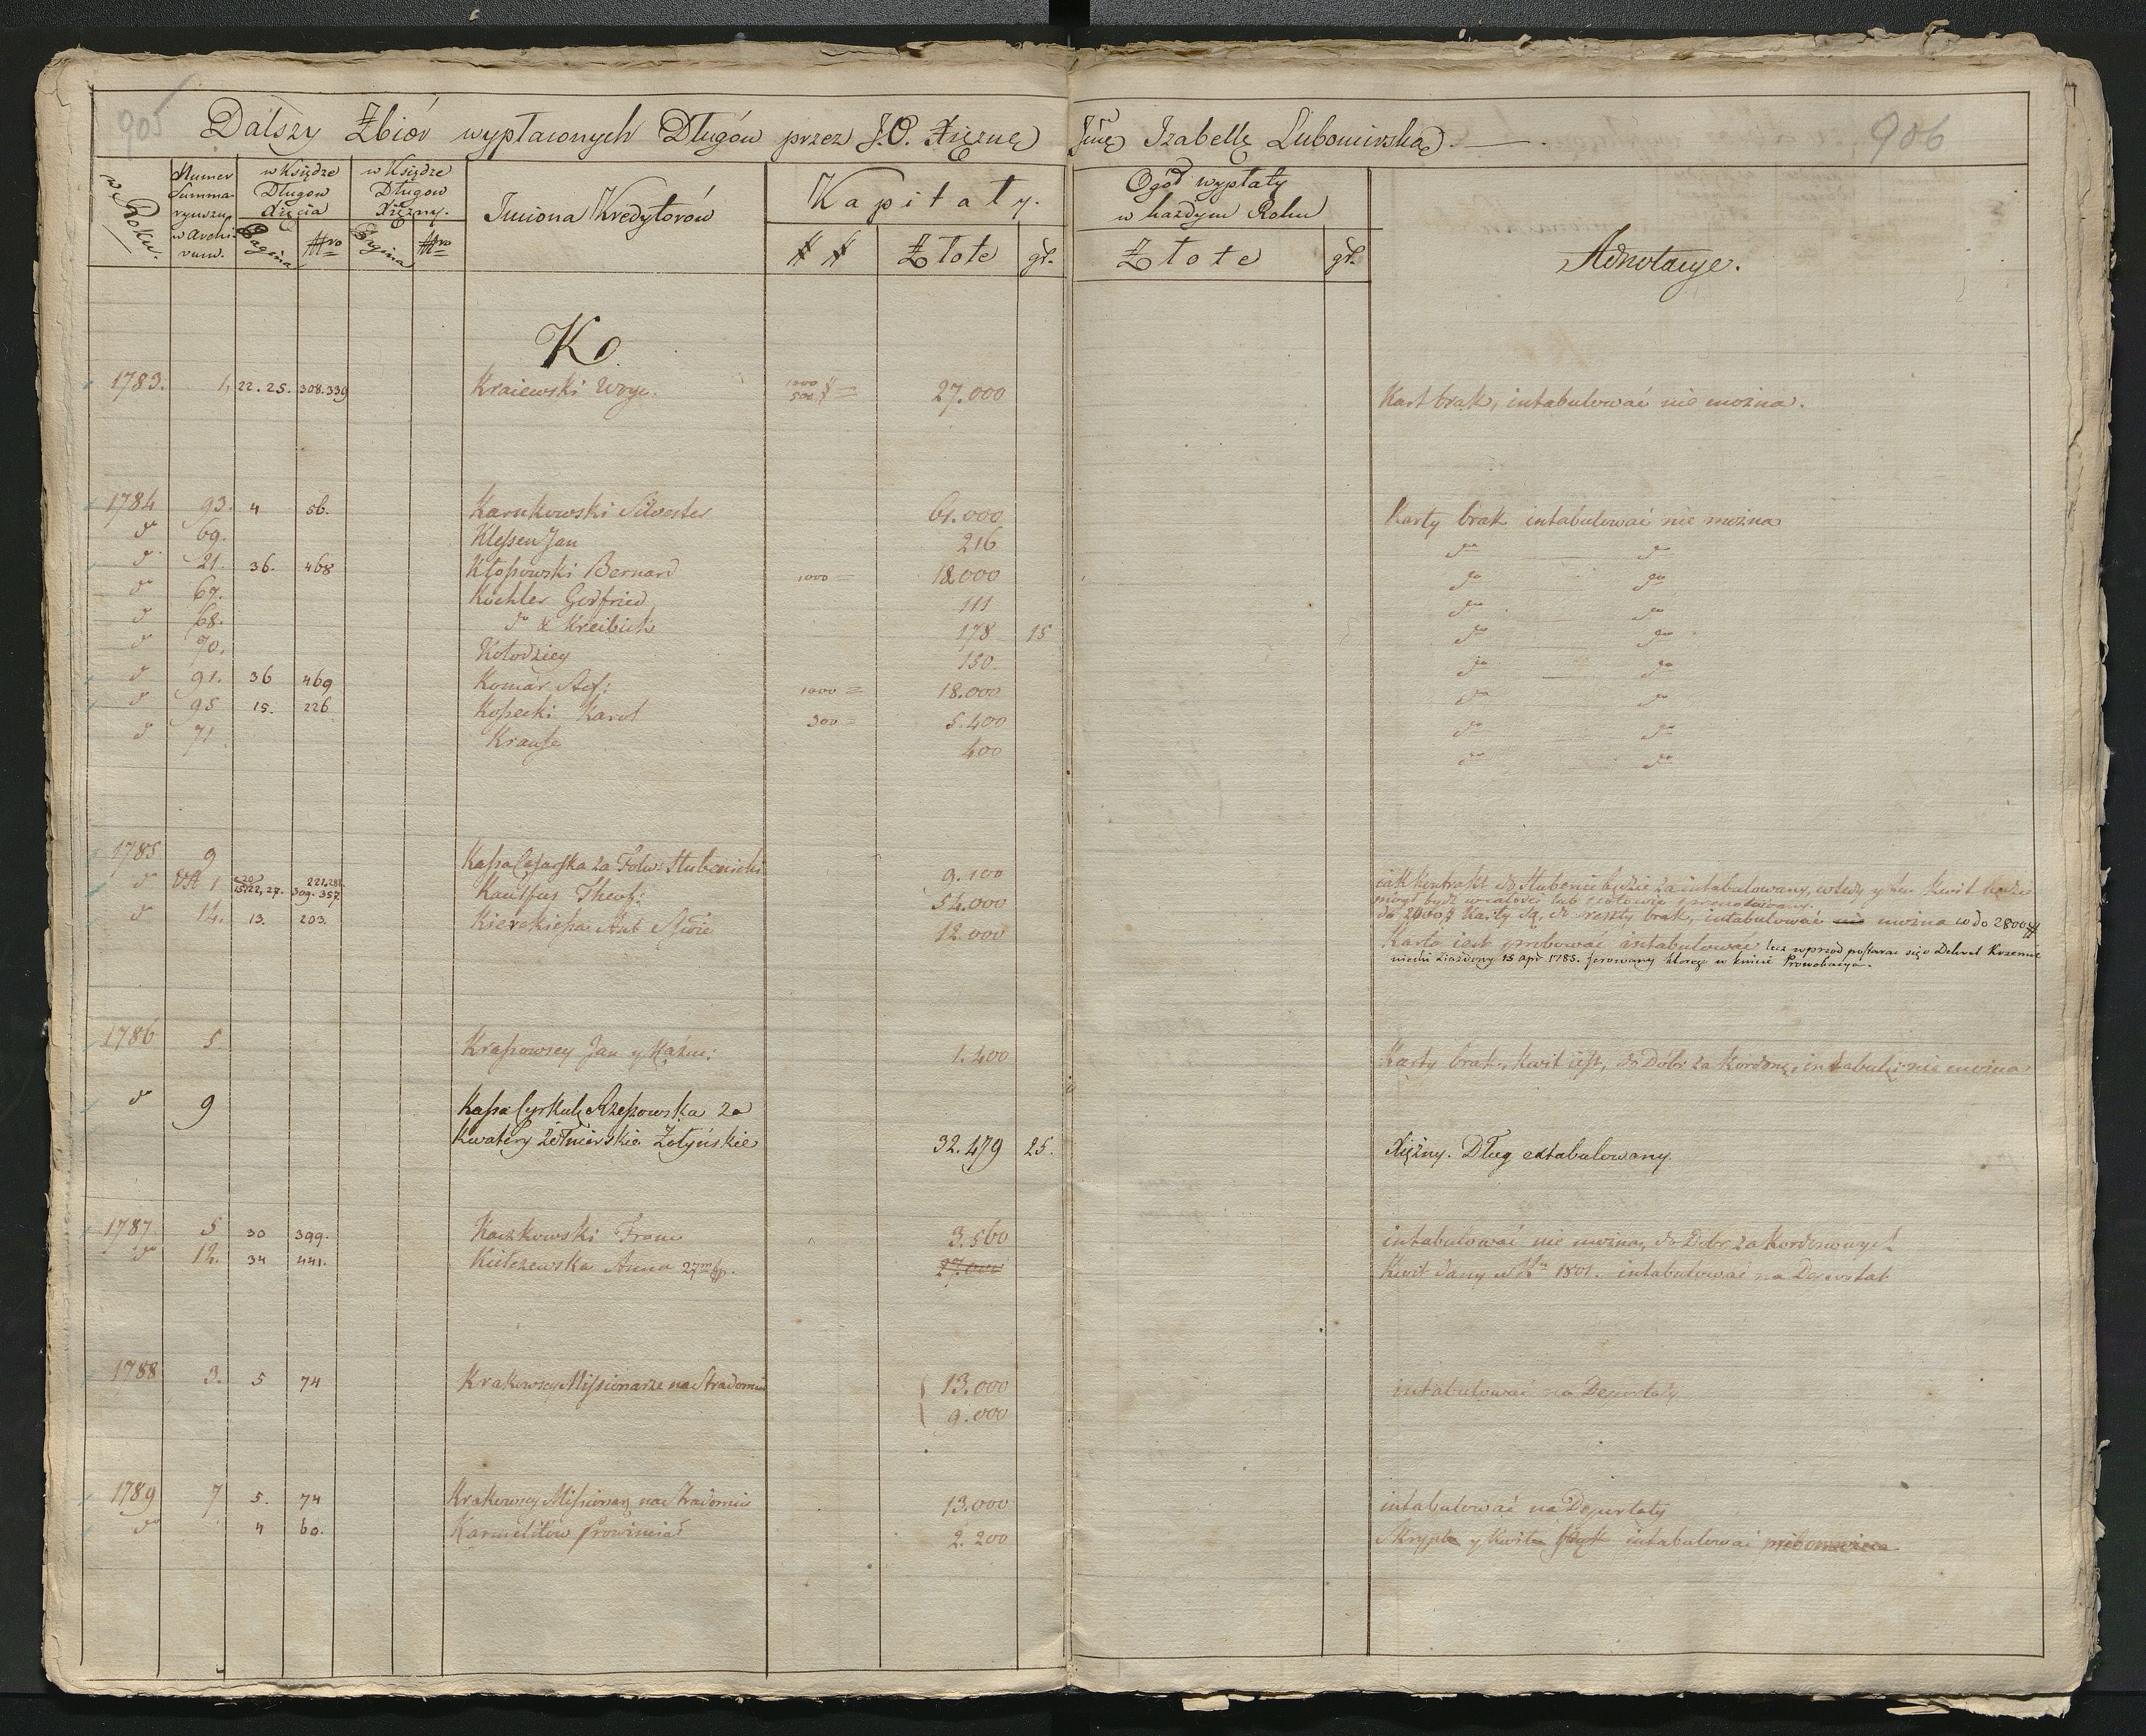 905
Dalszy Zbiór wypłaconych Długów przez J.O. Xiężnę Jmę Izabellę Lubomirską. — .
906
w Roku.
Numer Summaryuszu w Archivum.
w Księdze Długow Xięcia
Pagina Nro
w Księdze Długow Xiężny.
Pagina Nro
Imiona Kredytorów
Kapitały.
## Złote gr.
Ogół wypłaty w każdym Roku
Złote gr.
Adnotacye.
K.
1783. 1, 22. 25. 308. 339 Kraiewski Woyc. 1000 500 = 27.000 Kart brak, intabulować nie można.
1784 93. 4 56. Karnkowski Silvester 61.000 Karty brak intabulować nie można
do 69. Klessen Jan 216 do do
do 21. 36. 468 Kłossowski Bernard 1000 = 18.000 do do
do 67. Kochler Godfried 111 do do
do 68. do & Kreibich 178 15 do do
do 70. Kołodziey 150. do do
do 91. 36 469 Komar 1000 = 18.000 do do
do 95 15. 226 Kossecki Karol 300 = 5.400 do do
do 71 Krause 400 do do
1785 9 Kassa Cesarska za Folw: Stubenicki 9.100 iak Kontrakt do Stubenic będzie zaintabulowany, wtedy y ten Kwit będzie mógł bydź
do 1 20 15. 22, 27. 221. 281. 309. 357 Kautffus Theof: 54.000 do Karty są, do reszty brak, intabulować nie można co do 2800#
do 14. 13. 203. Kierekiesza Ant 12.000 Karta iest probować intabulować lecz wprzód postarać się o Dekret Krzemie
niecki ziazdowy 15 apr 1785. ferowany którego w kwicie Prowokacya.
1786 5. Krassowscy Jan y Kaźm: 1.400 Karty brak, Kwit iest, do Dóbr za Kordonę, intabul: nie można
do 9 Kassa Cyrkul: Rzeszowska za
Kwatery Żołnierskie Żołyńskie 32.479 25. Xiężny. Dług extabulowany.
1787. 5 30 399. Kaczkowski Franc 3.560 intabulować nie można, do Dobr za Kordonowych
do 12. 34 441. Kiełczewska Anna 27m fp. 27.000 Kwit dany w 1801. intabulować na Deportat
1788 3. 5 74 Krakowscy Missionarze na Stradomiu 13.000 intabulować na Deportaty
9.000
1789 7 5. 74 Krakowscy Missionarz na Stradomiu 13.000 intabulować na Deportaty
do 4 60. Karmelitów Prowincial 2.200 Skrypta y Kwita intabulować